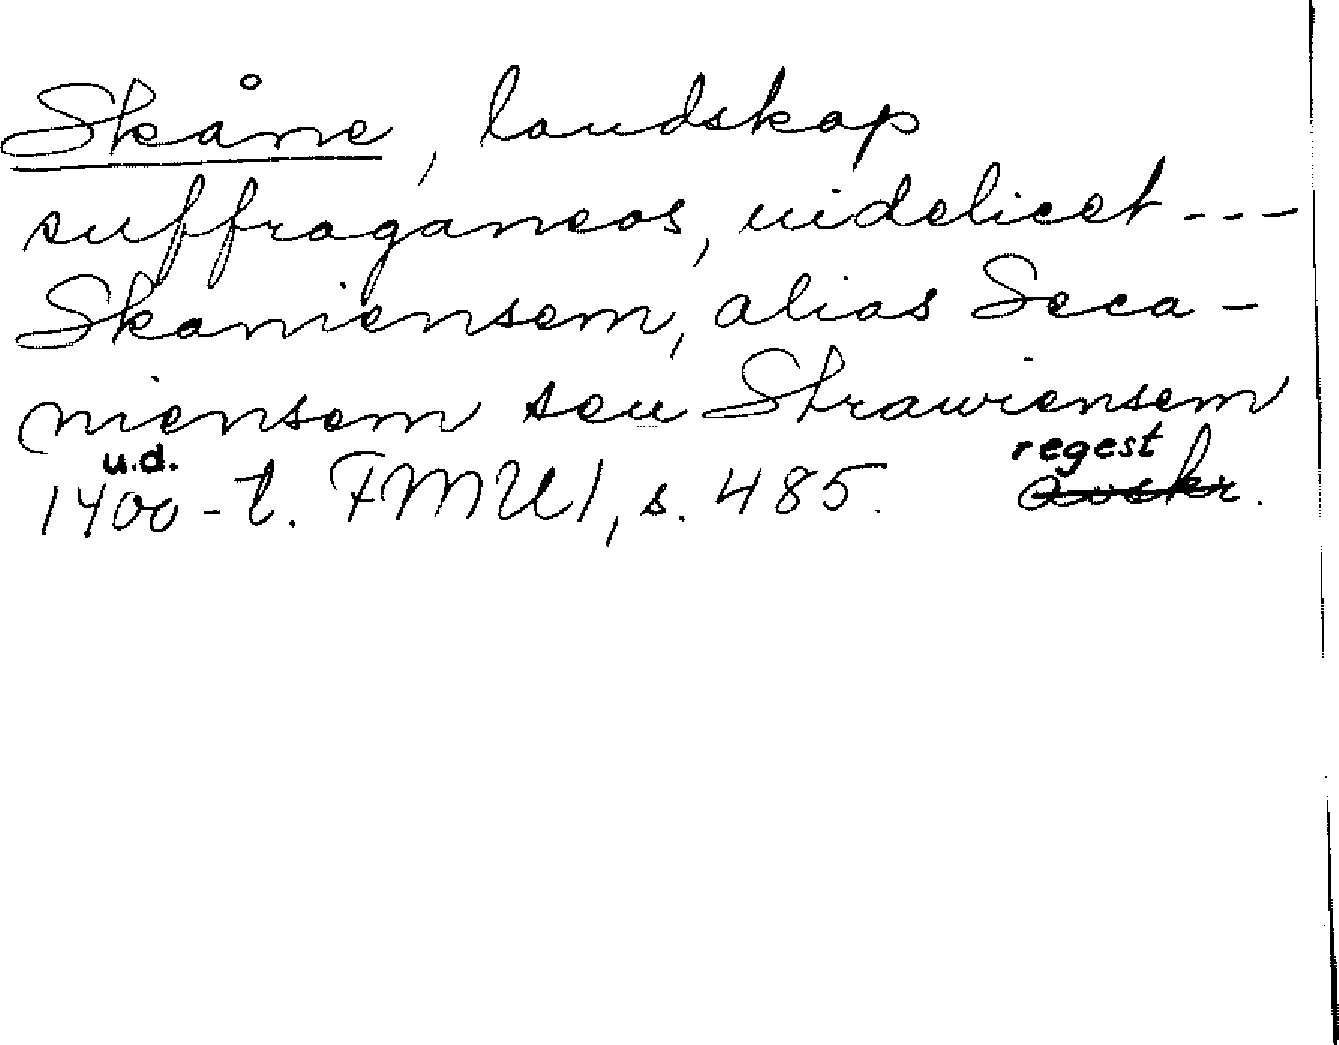 Skåne, landskap
suffraganeos, uidelicet ---
Skaniensem, alias Seca-
niensem seu Strawiensem
u.d. regest
1400-t. FMU 1, s. 485. Avskr.